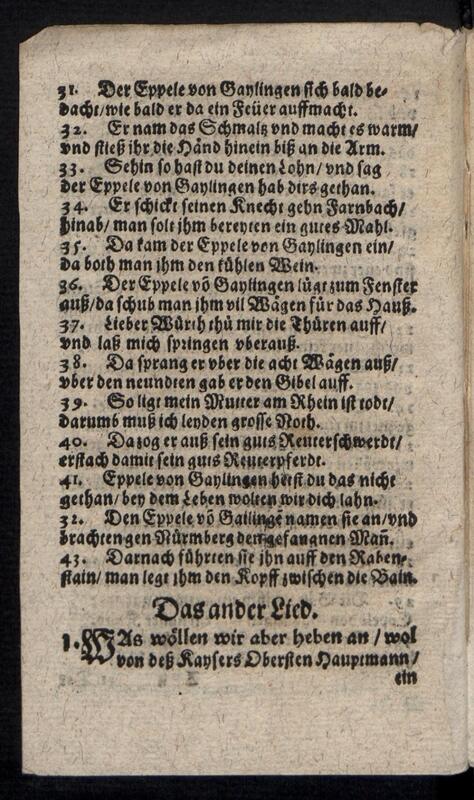 31. Der Eppele von Gaylingen sich bald be-
dacht/wie bald er da ein Feüer auffmacht.
32. Er nam das Schmaltz vnd macht es warm/
vnd stieß jhr die Händ hinein biß an die Arm.
33. Sehin so hast du deinen Lohn/ vnd sag
der Eppele von Gaylingen hab dirs gethan.
34. Er schickt seinen Knecht gehn Farnbach/
hinab/ man solt jhm bereyten ein gutes Mahl.
35. Da kam der Eppele von Gaylingen ein/
da both man jhm den kühlen Wein.
36. Der Eppele võ Gaylingen lügt zum Fenster
auß/da schub man jhm vil Wägen für das Hauß.
37. Lieber Würth thü mir die Thüren auff/
vnd laß mich springen vberauß.
38. Da sprang er vber die acht Wägen auß/
vber den neundten gab er den Gibel auff.
39. So ligt mein Mutter am Rhein ist todt/
darumb muß ich leyden grosse Noth.
40. Da zog er auß sein guts Reuterschwerdt/
erstach damit sein guts Reuterpferdt.
41. Eppele von Gaylingen hetst du das nicht
gethan/ bey dem Leben wolten wir dich lahn.
32. Den Eppele võ Gailingẽ namen sie an/vnd
brachten gen Nürmberg den gefangnen Mañ.
43. Darnach führten sie jhn auff den Raben-
stain/ man legt jhm den Kopff zwischen die Bain.
Das ander Lied.
1. WAs wöllen wir aber heben an / wol
von deß Kaysers Obersten Hauptmann/
ein